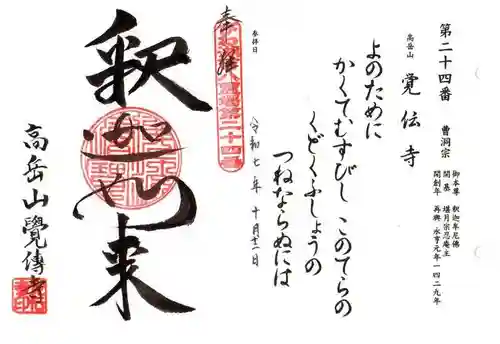 第二十四番
高岳山 覚伝寺
曹洞宗
御本尊 釈迦牟尼佛
開基 堪月宗忍庵主
開創年 再興 永亨元年一四二九年
よのために
かくてむすびし このてらの
くどくふしょうの
つねならぬには
参拝日
令和七年 十月十二日
奉拝
釈迦如来
高岳山覺傳寺